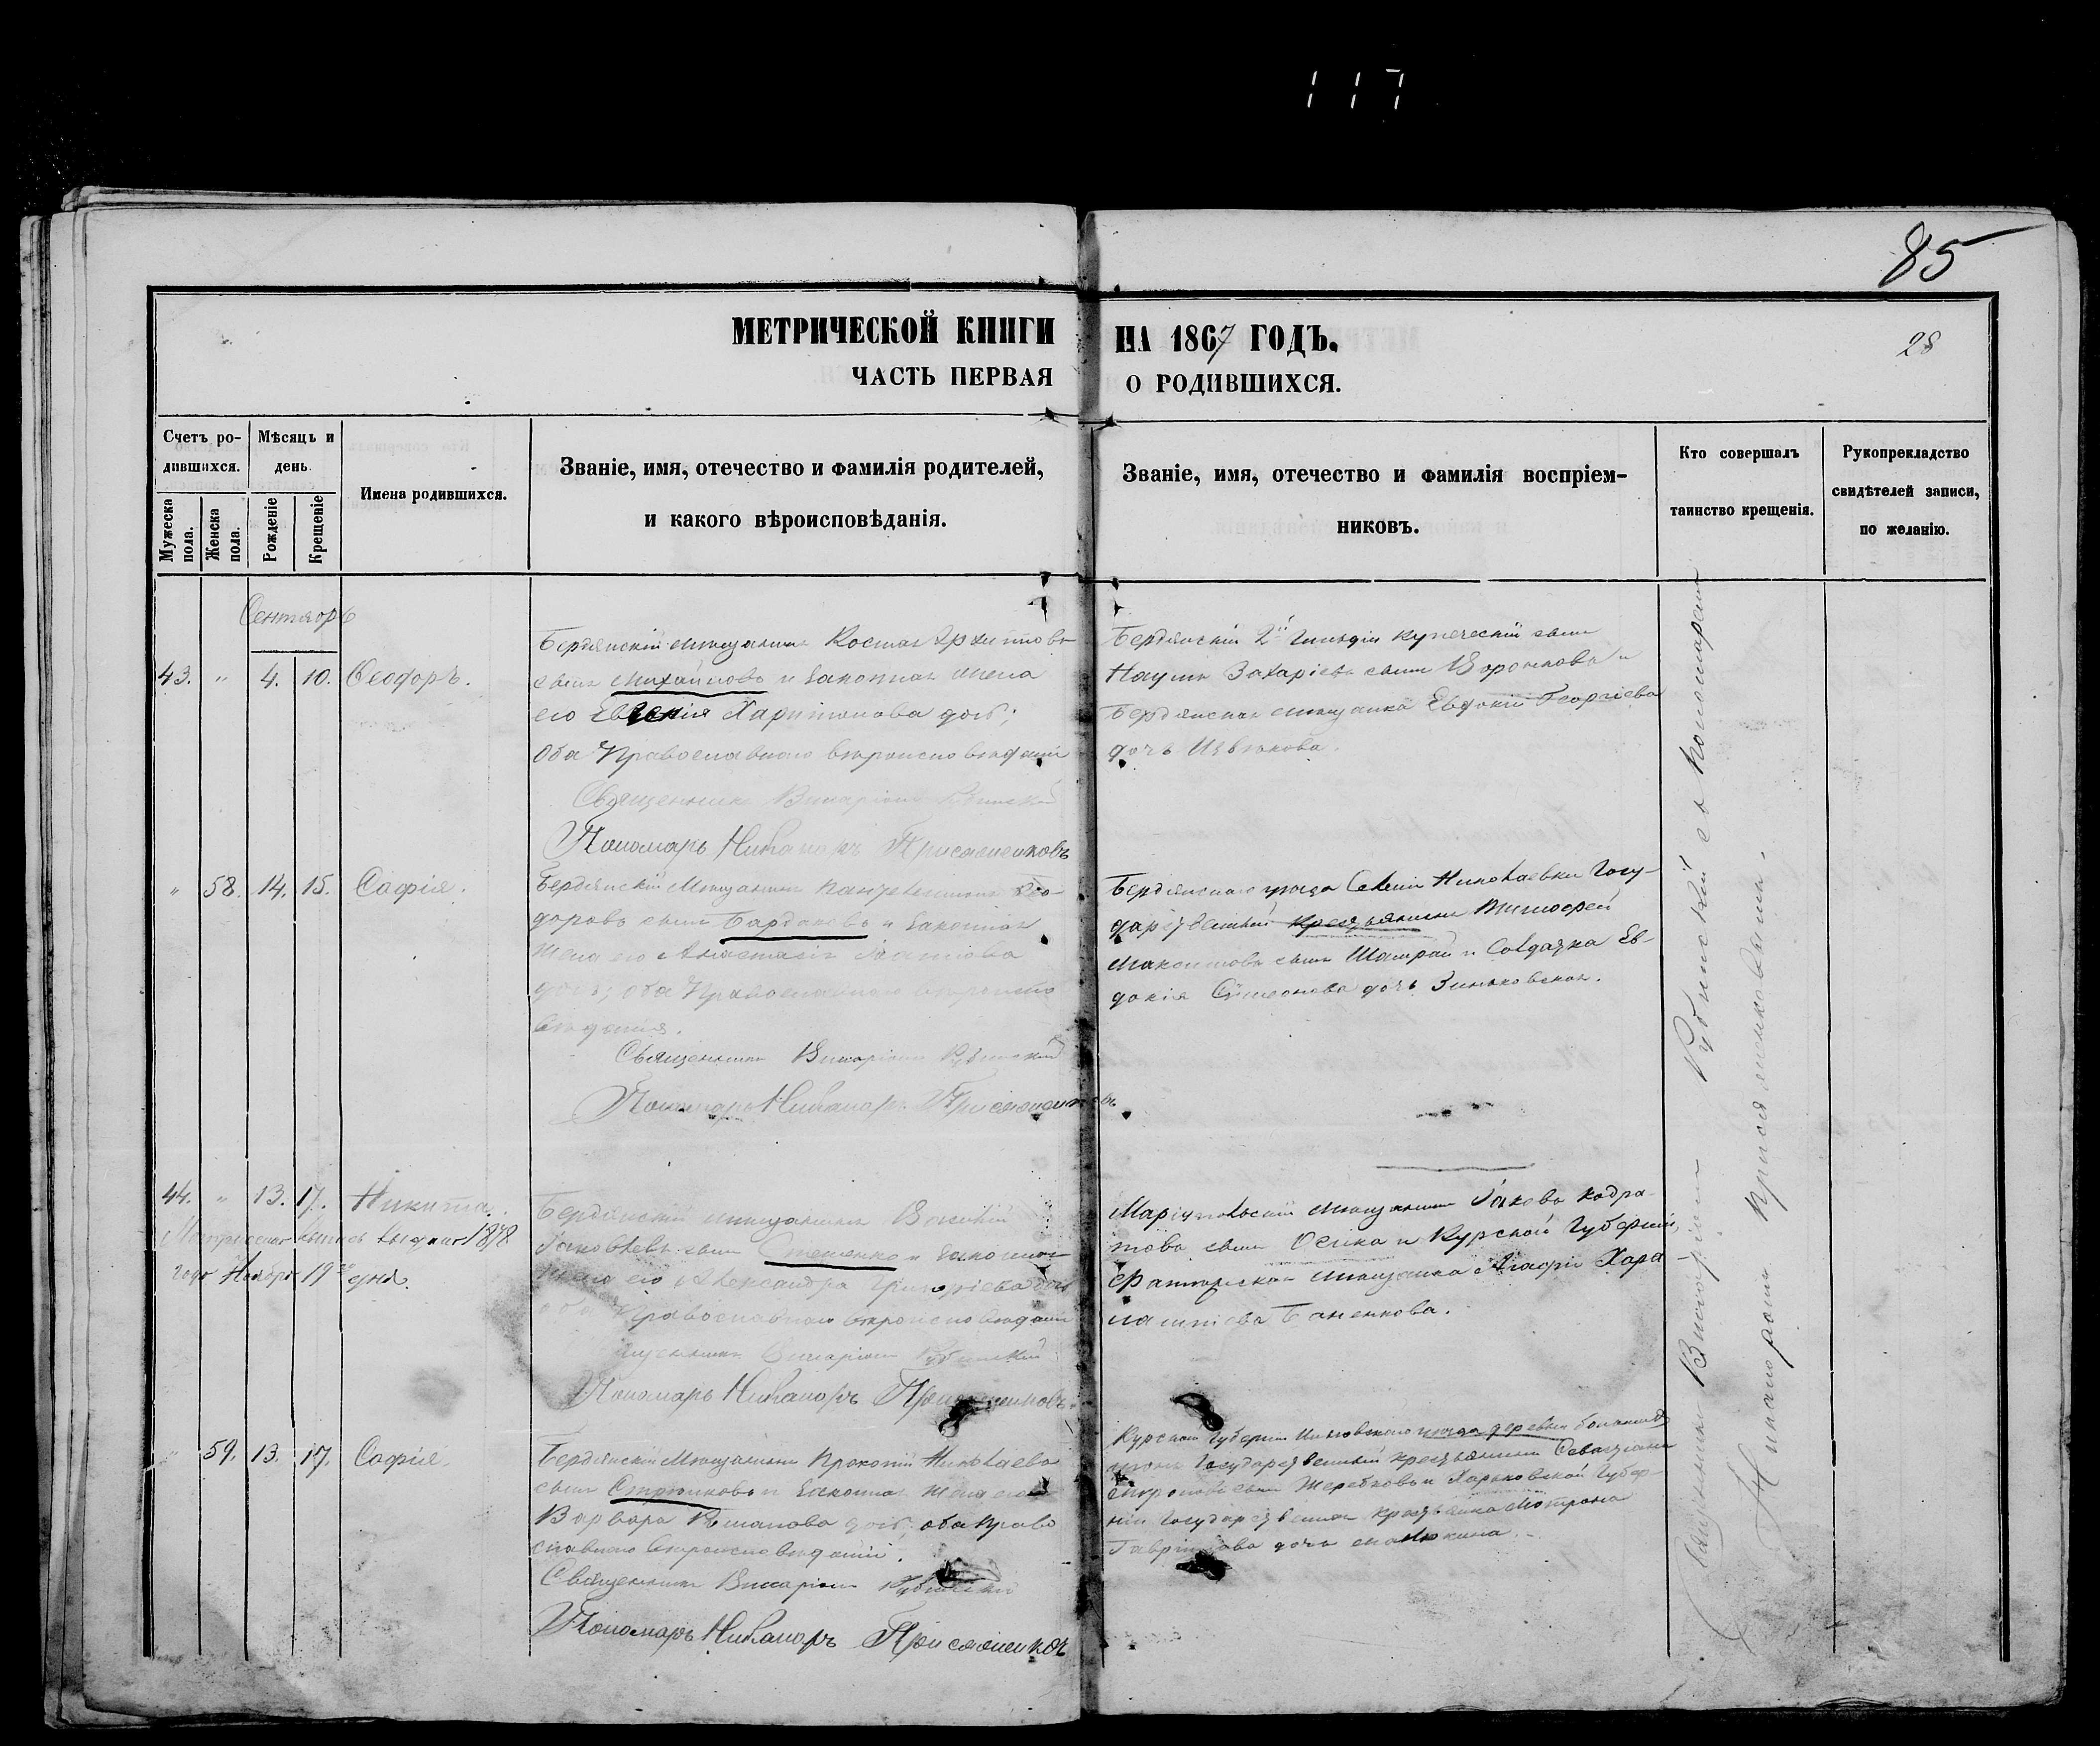 117
85
МЕТРИЧЕСКОЙ КНИГИ НА 1867 ГОДЪ.
28
ЧАСТЬ ПЕРВАЯ О РОДИВШИХСЯ.
Счетъ ро-
дившихся.
Мужеска пола.
Женска пола.
Мѣсяцъ и
день.
Рожденіе
Крещеніе
Имена родившихся.
Званіе, имя, отечество и фамилія родителей,
и какого вѣроисповѣданія.
Званіе, имя, отечество и фамилія воспріем-
никовъ.
Кто совершалъ
таинство крещенія.
Рукопрекладство
свидѣтелей записи,
по желанію.
Сентябрь
43. " 4. 10. Ѳеодоръ.
Бердянскій мѣщанинъ
сынъ Михайловъ и законная жена
его Харитонова дочь;
Оба Православнаго вѣроисповѣданія
Священникъ Виссаріонъ Рубинскій
Пономарь Никаноръ Присяженковъ
Бердянскій 2й гильдіи купеческій сынъ
Наумъ Захаріевъ сынъ Воронковъ и
Бердянская мѣщанка Евдокія Георгіева
дочь
" 58. 14. 15. Софія.
Бердянскій Мѣщанинъ Пантелеимонъ Ѳео-
доровъ сынъ Бардаковъ и законная
жена его Анастасія
дочь; оба Православнаго вѣроиспо
вѣданія.
Священникъ Виссаріонъ Рубинскій
Пономарь Никаноръ Присяженковъ
Бердянскаго уѣзда Селенія Николаевки Госу-
дарственный крестьянинъ Тимофей
сынъ Шамрай и Солдатка Ев-
докія Сѵмеонова дочь Зиньковская.
44. " 13. 17. Никита.
Метрическая выпись выдана 1878
года Ноября 19го дня.
Бердянскій мѣщанинъ Василій
Іаковлевъ сынъ Степенко и законная
жена его Александра Григоріева дочь
оба Православнаго вѣроисповѣданія
Священникъ Виссаріонъ Рубинскій
Пономарь Никаноръ Присяженковъ
Маріупольскій мѣщанинъ Іаковъ Кодра-
товъ сынъ и Курской Губерніи,
мѣщанка Агафія Хара
лампіева Баненкова.
" 59. 13. 17. Софія.
Бердянскій Мѣщанинъ Прокопій Николаевъ
сынъ Стрюковъ и законная жена его
Варвара дочь; оба Право
славнаго вѣроисповѣданія.
Священникъ Виссаріонъ Рубинскій
Пономарь Никаноръ Присяженковъ
Курской Губерніи уѣзда деревни
Государственный крестьянинъ Севастіанъ
сынъ Жеребковъ и Харьковской Губер-
ніи Государственная крестьянка Матрона
Гавріилова дочь
Священникъ Виссаріонъ Рубинскій съ Пономаремъ
Никаноромъ Присяженковымъ.